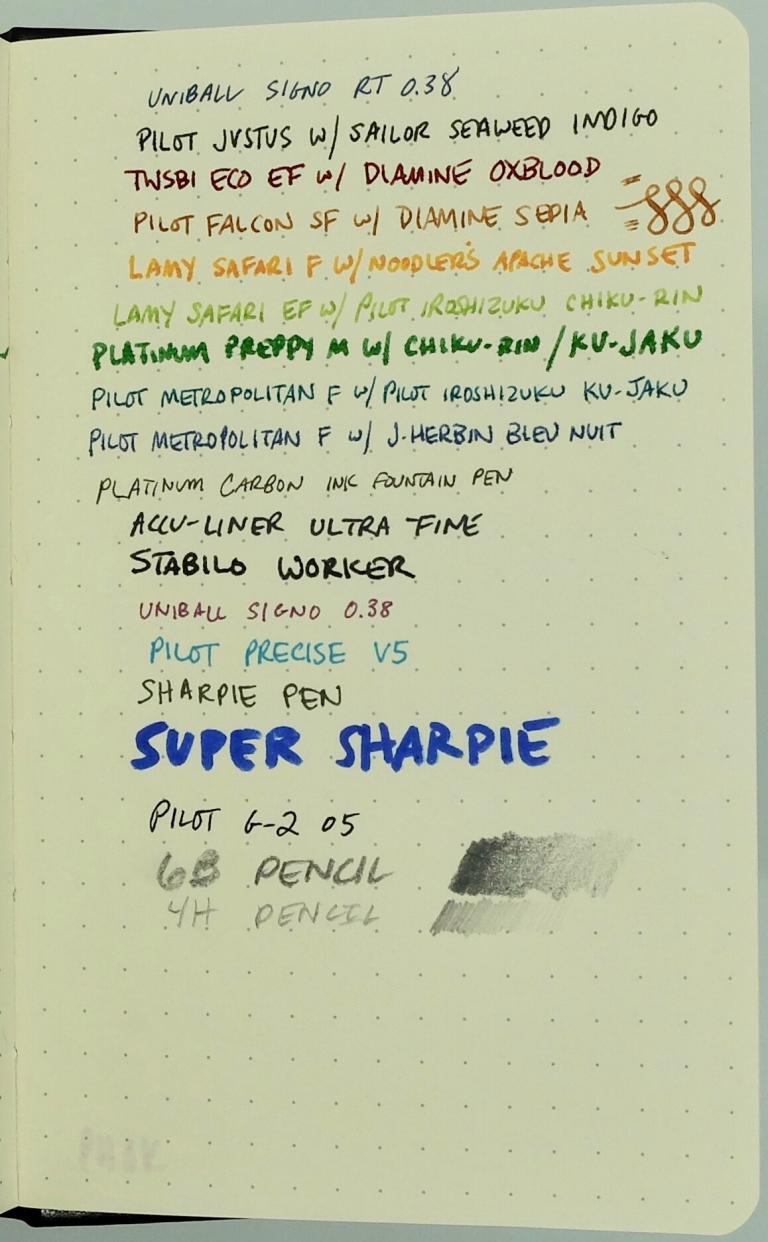 UNIBALL SIGNO RT 0.38
PILOT JUSTUS W/ SAILOR SEAWEED INDIGO
TWSBI ECO EF W/ DIAMINE OXBLOOD
PILOT FALCON SF W/ DIAMINE SEPIA
LAMY SAFARI F W/ NOODLER'S APACHE SUNSET
LAMY SAFARI EF W/ PILOT IROSHIZUKU CHIKU-RIN
PLATINUM PREPPY M W/ CHIKU-RIN / KU-JAKU
PILOT METROPOLITAN F W/ PILOT IROSHIZUKU KU-JAKU
PILOT METROPOLITAN F W/ J-HERBIN BLEU NUIT
PLATINUM CARBON INK FOUNTAIN PEN
ACCU-LINER ULTRA FINE
STABILO WORKER
UNIBALL SIGNO 0.38
PILOT PRECISE V5
SHARPIE PEN
SUPER SHARPIE
PILOT G-2 05
6B PENCIL
4H PENCIL